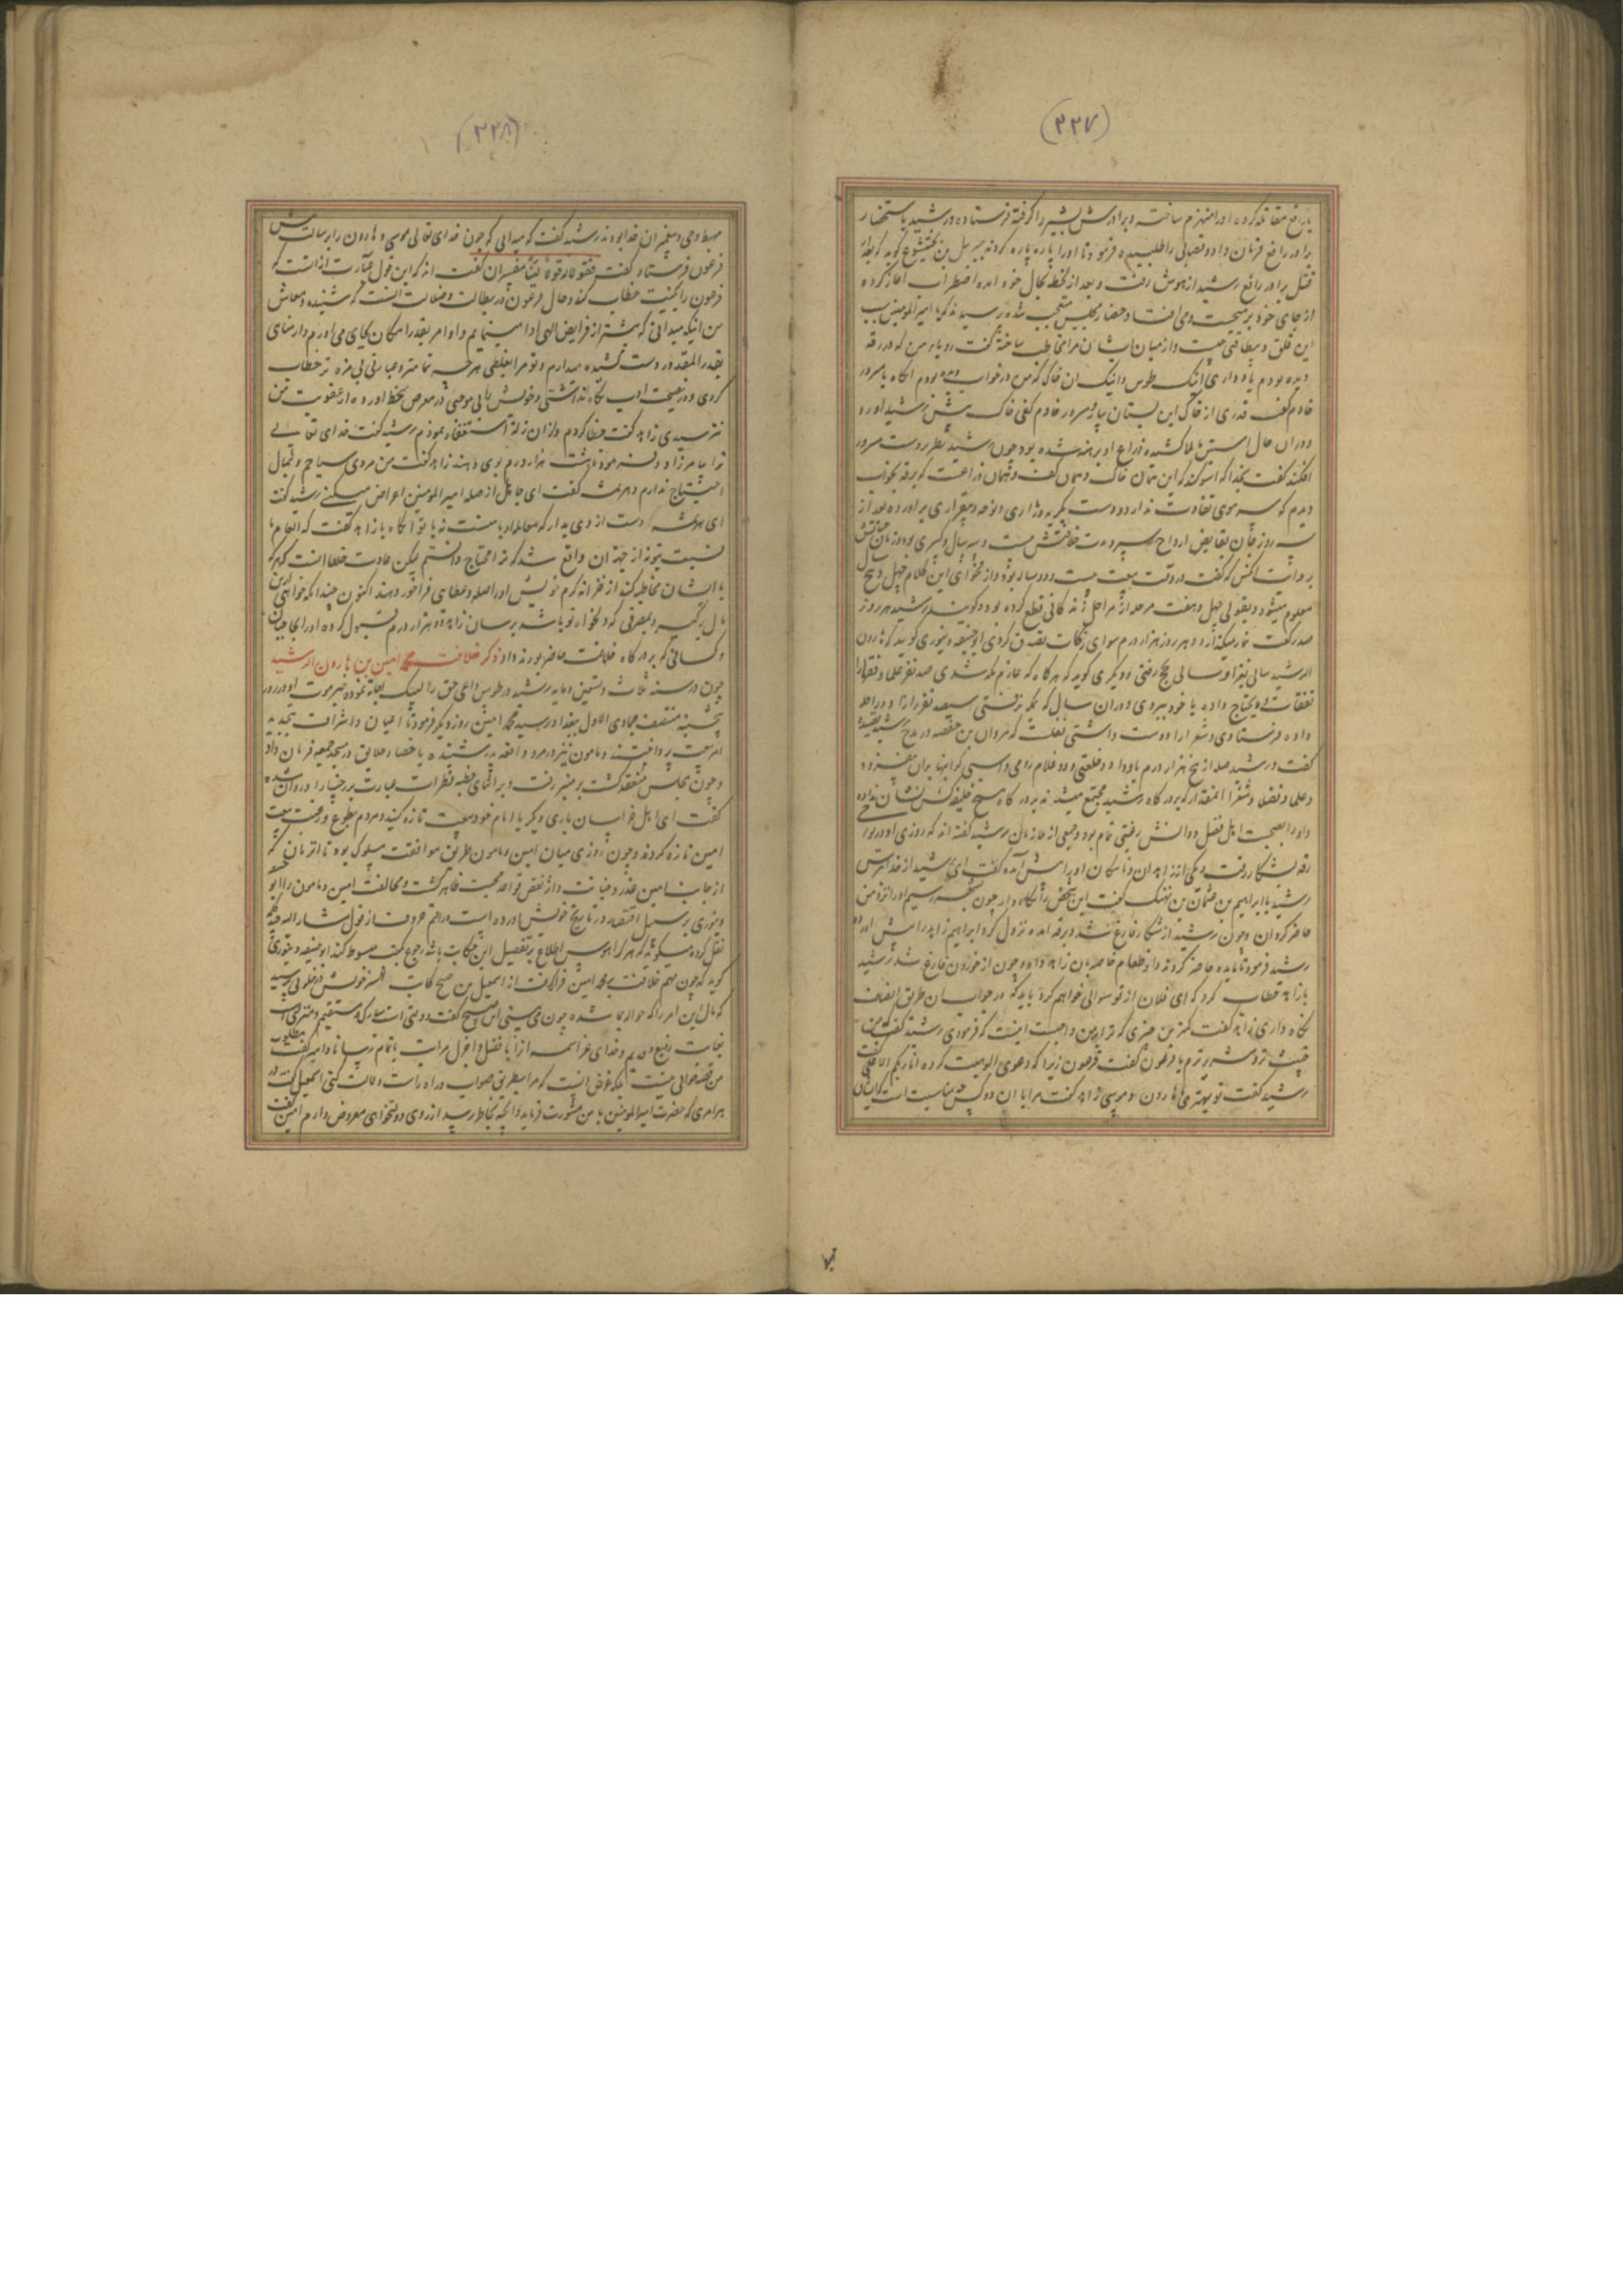 (۲۲۷)
با رافع مقاتله کرده او را منهزم ساخت و برادرش بشیر را گرفته فرستاده و رشید باستحضار
برادر رافع فرمان داد و قصابی را طلبیده فرمود تا او را پاره پاره کردند جبریل بن بختیشوع گوید که بعد
قتل برادر رافع رشید از هوش رفت و بعد از لحظه بحال خود آمده اضطراب آغاز کرده
از جای خود بر میجست و می افتاد و حضار مجلس متعجب شده پرسیدند که یا امیر المومنین سبب
این قلق و بیطاقتی چیست و از میان ایشان مرا مخاطب ساخته گفت رویا من که در رقه
دیده بودم یاد داری اینک طوس و اینک آن خاک که من در خواب دیده بودم آنگاه با مسرور
خادم گفت قدری از خاک این بستان بیار مسرور خادم کفی خاک پیش رشید آورد
و در آن حال آستین بالا کشیده ذراع او برهنه شده بود چون رشید نظر بر دست مسرور
افکند گفت بخدا که سوگند که این همان خاک و همان کف و همان ذراعت که در رقه بخواب
دیدم که سر موی تفاوت ندارد و دست بگریه و زاری و نوحه و بیقراری برآورده بعد از
سه روز جان بقابض ارواح سپرد مدت خلافتش بیست و سه سال و کسری بود و زمان حیاتش
بروایت آنکس که گفت در وقت بیعت بیست و دو ساله بود و از فحوای این کلام چهل و پنج سال
معلوم میشود و بقولی چهل و هفت مرحله از مراحل زندگانی قطع کرده بود و گویند رشید هر روز
صد رکعت نماز میگذارد و هر روز هزار درم سوای زکات تصدق کردی ابوحنیفه دینوری گوید که هارون
الرشید سالی بغزا و سالی بحج رفتی و دیگری گوید که هر گاه که عازم مکه شدی صد نفر علما و فقها را
نفقات و مایحتاج داده با خود ببردی و در آن سال که بمکه نرفتی سیصد نفر را زاد و راحله
داده فرستادی و شعرا را دوست داشتی نقلست که مروان بن حفصه در مدح رشید قصیده
گفت و رشید صله از پنج هزار درم باو داد و خلعتی و ده غلام رومی و اسبی گرانبها بران مفزود
و علما و فضلا و شعرا آنمقدار که بدرگاه رشید مجتمع میشدند بدرگاه هیچ خلیفه کس نشان نداده
و او را بصحبت اهل فضل و دانش رغبتی تمام بود و جمعی از ملازمان رشید گفته اند که روزی او در نور
رقه بشکار رفت و یکی از زاهدان و ناسکان او پیرامنش آمده گفت ای رشید از خدا بترس
رشید با ابراهیم بن عثمان بن نهیک گفت این شخص را نگاه دار چون بخیمه رسیم او را نزد من
حاضر گردان و چون رشید از شکار فارغ شد و برقه آمده نزول کرد ابراهیم زاهد را پیش آورد
رشید فرمود تا مایده حاضر کردند و از طعام خاصه بان زاهد داد و چون از خوردن فارغ شد رشید
بازاهد خطاب کرد که ای فلان از تو سوالی خواهم کرد باید که در جواب آن طریق انصاف
نگاه داری زاهد گفت کمترین چیزی که ترا بر من واجبست اینست که فرمودی رشید گفت من
خبیث تر و شریر ترم یا فرعون گفت فرعون زیرا که دعوی الوهیت کرده انا ربکم الاعلی گفت
رشید گفت تو بهتری یا هارون و موسی زاهد گفت مرا با آن دو کس چه مناسبت است که ایشان
(۲۲۸)
مهبط وحی و پیغمبران خدا بودند رشید گفت که میدانی که چون خدای تعالی موسی و هارون را برسالت پیش
فرعون فرستاد گفت فقولا له قولا لینا مفسران گفته اند که این قول عبارت از آنست که
فرعون را بکنیت خطاب کند و حال فرعون در بطالت و ضلالت آنست که شنیده و معاش
من اینکه میدانی که بیشتر از فرایض الهی ادا مینمایم و اوامر بقدر امکان بجای می آورم و از مناهی
بقدر المقدور دست کشیده میدارم و تو مرا بغلظتی هر چه تمامتر و عبارتی بی مزه تر خطاب
کردی و در نصیحت ادب نگاه نداشتی و خویش را بی موجبی در معرض سخط آورده از عقوبت من
نترسیدی زاهد گفت خطا کردم و از آن زلت استغفار نمودم رشید گفت خدای تعالی
ترا بیامرزاد و فرمود تا بیست هزار درم بوی دهند زاهد گفت من مردی سیاحم و بمال
احتیاج ندارم و هرثمه گفت ای جاهل از صله امیر المومنین اعراض میکنی رشید گفت
ای هرثمه دست از وی بدار که معامله او با ماست نه با تو آنگاه با زاهد گفت که انعام ما
نسبت بتو نه از جهة آن واقع شد که ترا محتاج دانستم لیکن عادت خلفا آنست که هر که
با ایشان مخاطبه کند از خزانه کرم خویش او را صله و عطای فراخور دهند اکنون چندانکه خواهی ازین
مال برگیر و بمصرفی که دلخواه تو باشد برسان زاهد دو هزار درم قبول کرده او را بحاجبان
و کسانی که بر درگاه خلافت حاضر بودند داد ذکر خلافت محمد امین بن هارون الرشید
چون در سنه ثلث و تسعین و مایه رشید در طوس داعی حق را لبیک اجابت نموده خبر موت او در روز
پنجشنبه منتصف جمادی الاول ببغداد رسید محمد امین روز دیگر فرمود تا اعیان و اشراف بتجدید
امر بیعت پرداختند و مامون نیز در مرو واقعه پدر شنیده باحضار خلایق در مسجد جمعه فرمان داد
و چون مجلس منعقد گشت بر منبر رفت و بر اقتضای خطبه قطرات عبرات بر رخسار او روان شده
گفت ای اهل خراسان باری دیگر با امام خود بیعت تازه کنید و مردم بطوع و رغبت بیعت
امین تازه کردند و چون روزی میان امین و مامون طریق موافقت مسلوک بود تا آنزمان که
از جانب امین غدر و خیانت و نقض قواعد محبت ظاهر گشت و مخالفت امین و مامون را ابو حنیفه
دینوری بر سبیل اقتصار در تاریخ خویش آورده است و راقم حروف از قول مشار الیه
نقل کرده میگوید که هر که را هوس اطلاع بر تفصیل این حکایت باشد رجوع بکتب مبسوط کند ابوحنیفه دینوری
گوید که چون مهم خلافت بر محمد امین قرار گرفت از اسمعیل بن صبیح کاتب السر خویش در خلوتی پرسید
که مال این امر را که حواله بما شده چون می بینی ابن صبیح گفت دولتی است مبارک و مستقیم و منزلی
بغایت رفیع و قدیم و خدای عز اسمه از آبا بافضل و اجزل مراتب باتمام رساناد امیر گفت مطلوب
من قصه خوانی نیست بلکه غرض آنست که مرا بطریق صواب و راه راست دلالت کنی اسمعیل گفت در
هر امری که حضرت امیر المومنین با من مشورت فرماید آنچه بخاطر رسد از روی دولتخواهی معروض دارم امین گفت